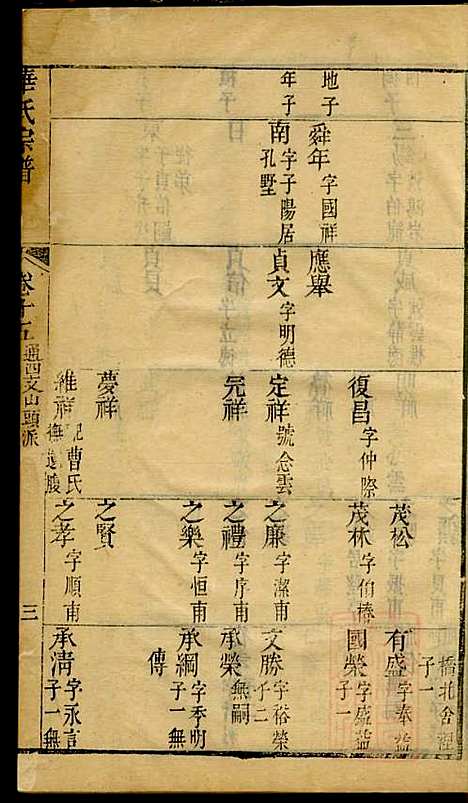 地子
年子
舜年 字國祥
南 字子陽居孔墅
應舉
貞文 字明德
復昌 字仲際
定祥 號念雲
完祥
夢祥
維祥 曹氏
茂松
茂林 字伯椿
之廉 字潔甫
之禮 字序甫
之樂 字恒甫
之賢
之孝 字順甫
橋北舍涇
子一
有盛 字奉益
國榮 字盛益子一
文勝 字裕榮子二
承榮 無嗣
承綱 字季明子一無傳
承淸 字永言子一無
華氏宗譜
卷十五
通四支山頭派
三